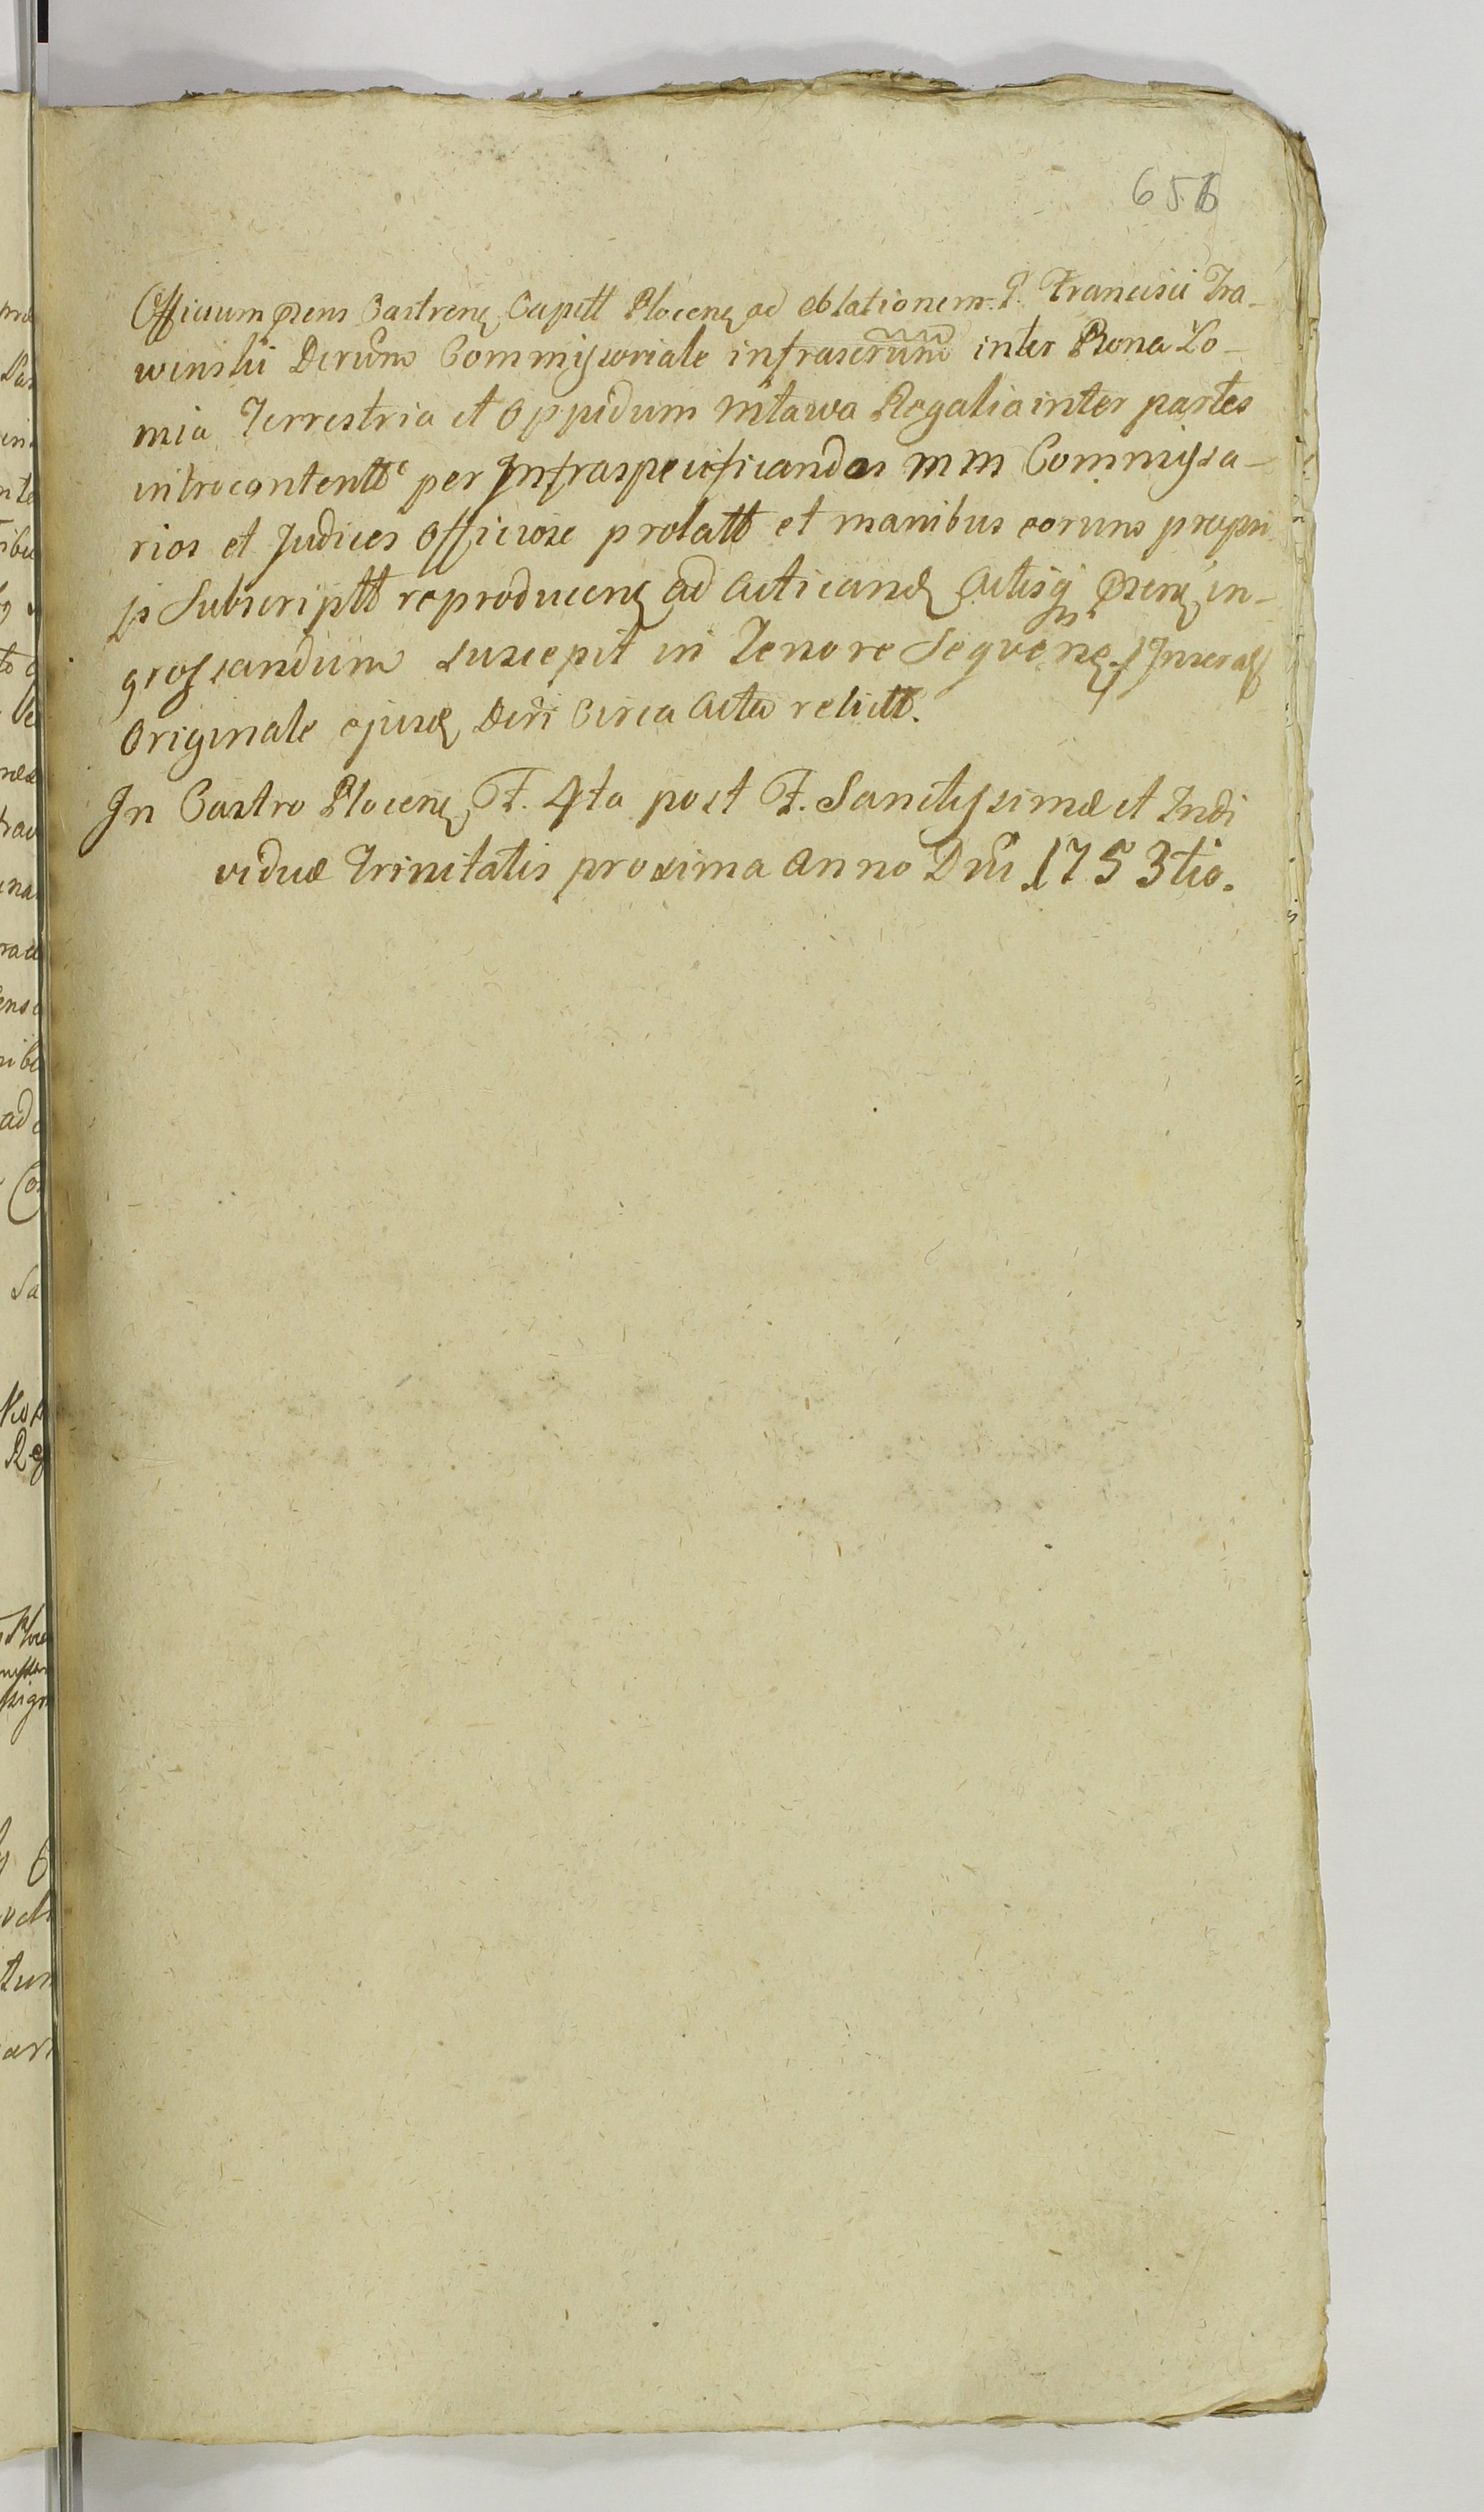 656
Officium pñens Castrenę Capttt Plocenę ad oblationem P. Francisci Tra-
winski Decrũm Commissoriale infrascrũm inter Bona Ło-
mia Terrestria et Oppidum Mława Regalia inter partes
introcontenttt per Infraspecificandos MM Commissa-
rios et Judices Officiose prolattt et manibus eorum propri
js Subscripttt reproducenę ad acticandę Actisq pñenę in-
grossandum suscepit in Tenore Seqvenę. / Inseratę
Originale ejusdę Dcri Circa Acta relicttt.
In Castro Plocenę F. 4ta post F. Sanctissimæ et Indi
viduæ Trinitatis proxima Anno Dñi 1753tio.